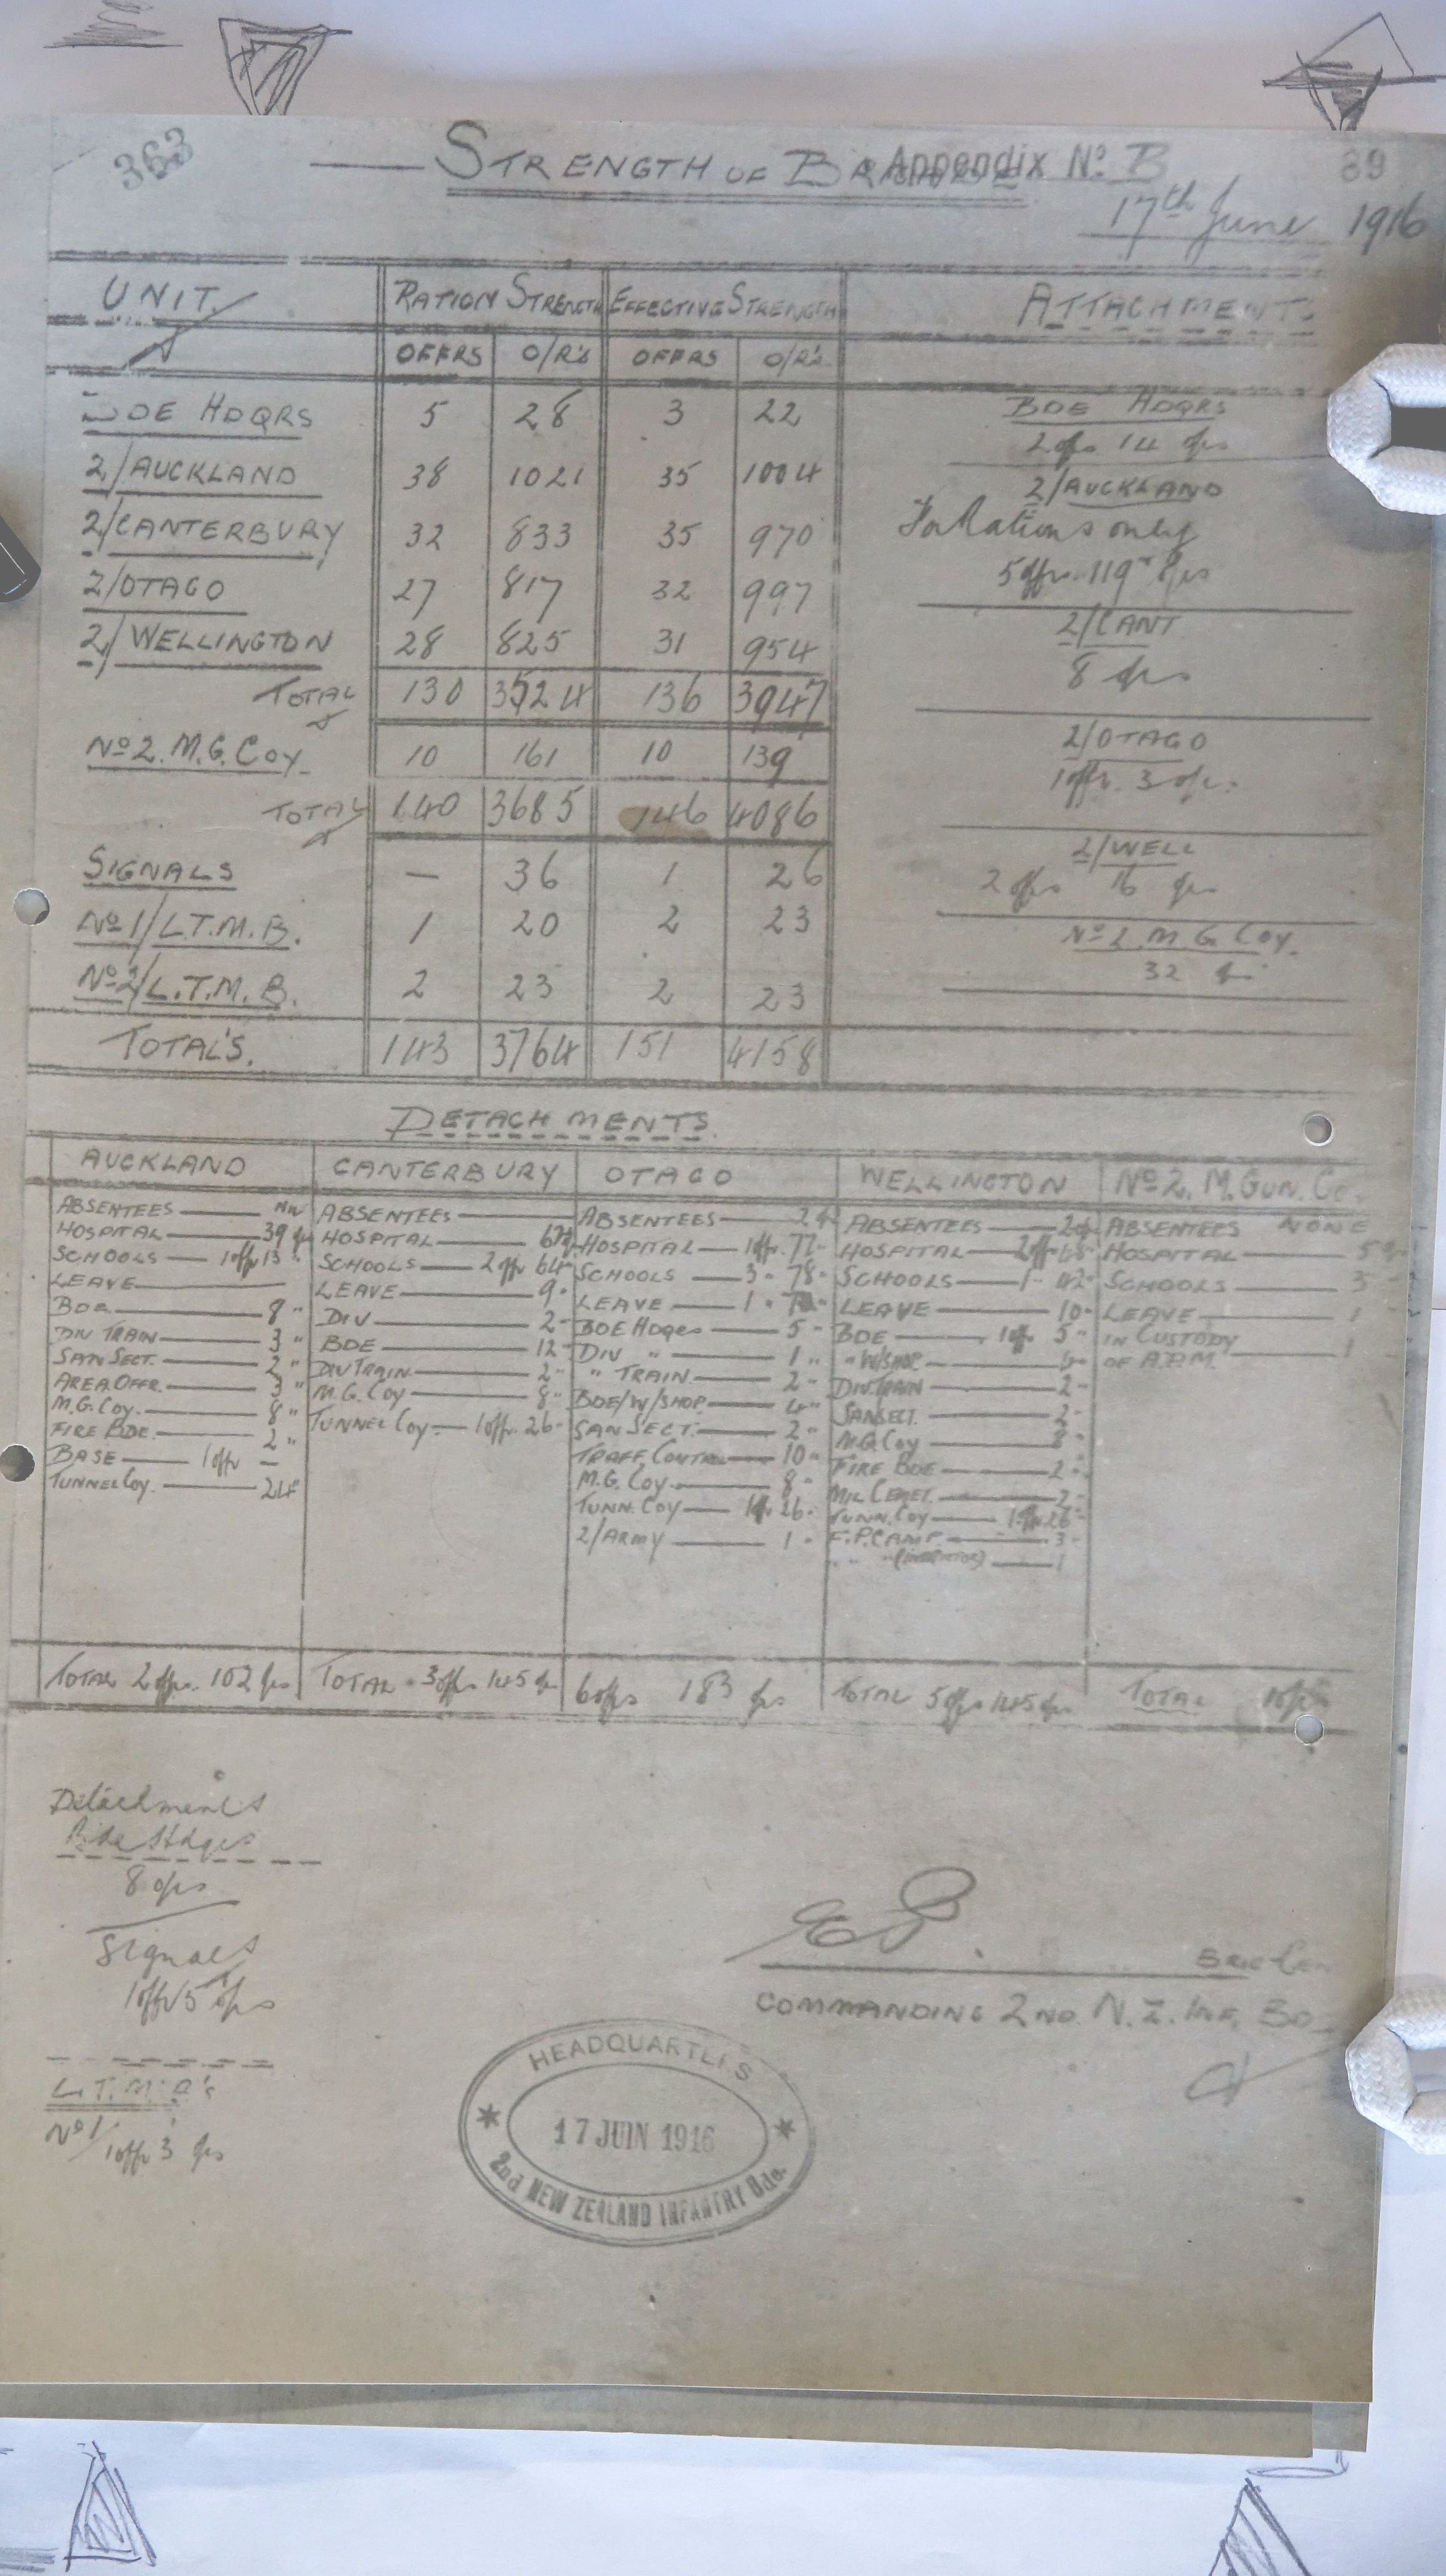 363
STRENGTH OF BRIGADE Appendix No. B 89
17th June 1916
UNIT. RATION STRENGTH EFFECTIVE STRENGTH ATTACHMENTS
OFFRS O/R's OFFRS O/R's
BDE HDQRS 5 28 3 22
2/AUCKLAND 38 1021 35 1004
2/CANTERBURY 32 833 35 970
2/OTAGO 27 817 32 997
2/WELLINGTON 28 825 31 954
TOTAL 130 3524 136 3947
No 2. M.G. Coy. 10 161 10 139
TOTAL 140 3685 146 4086
SIGNALS — 36 1 26
No 1/L.T.M.B. 1 20 2 23
No 2/L.T.M.B. 2 23 2 23
TOTAL'S. 143 3764 151 4158
BDE HDQRS
2 ofrs 14 ors
2/AUCKLAND
For Rations only
5 offrs. 119 ors
2/CANT
8 ors
2/OTAGO
1 offr. 3 ors.
2/WELL
2 ofrs 16 ors
No 2. M.G. Coy.
32 or
DETACHMENTS.
AUCKLAND
ABSENTEES — NIL
HOSPITAL — 39 ors
SCHOOLS — 1 offr 13 "
LEAVE —
BDE — 8 "
DIV TRAIN — 3 "
SAN SECT. — 2 "
AREA OFFR. — 3 "
M.G. Coy. — 8 "
FIRE BDE. — 2 "
BASE — 1 offr —
TUNNEL Coy. — 24
TOTAL 2 offrs. 102 ors
CANTERBURY
ABSENTEES —
HOSPITAL —
SCHOOLS — 2 offr 64
LEAVE — 9 "
DIV — 2 "
BDE — 12 "
DIV TRAIN — 2 "
M.G. Coy — 8 "
TUNNEL Coy. — 1 offr. 26 "
TOTAL 3 offrs 145 ors
OTAGO
ABSENTEES —
HOSPITAL — 1 offr. 77 "
SCHOOLS — 3 " 78 "
LEAVE — 1 "
BDE HDQRS — 5 "
DIV " — 1 "
" TRAIN. — 2 "
BDE/W/SHOP. — 4 "
SAN SECT. — 2 "
TRAFF. CONTROL — 10 "
M.G. Coy. — 8 "
TUNN. COY — 1 offr. 26 "
2/ARMY — 1 "
6 ofrs 183 ors
WELLINGTON
ABSENTEES —
HOSPITAL —
SCHOOLS — 1 " 42 "
LEAVE — 10 "
BDE — 1 offr 5 "
" W/SHOP. —
DIV. TRAIN — 2 "
SAN SECT. — 2 "
M.G. Coy —
FIRE BDE — 2 "
MIL CEMET. — 2 "
TUNN. COY — 1 offr 26 "
F.P. CAMP. — 3 "
" " — 1
TOTAL 5 ofrs 145 ors
No 2. M. GUN. Co.
ABSENTEES NONE
HOSPITAL — 5
SCHOOLS — 3
LEAVE — 1
IN CUSTODY
OF A.P.M. — 1
TOTAL 10 ors
Detachments
Bde Hdqrs
8 ors
Signals
1 offr 15 ors
L.T.M.B's
No 1/
1 offr 3 ors
BRIG GEN
COMMANDING 2ND. N.Z. INF. BD
HEADQUARTERS
17 JUIN 1916
2nd NEW ZEALAND INFANTRY Bde.